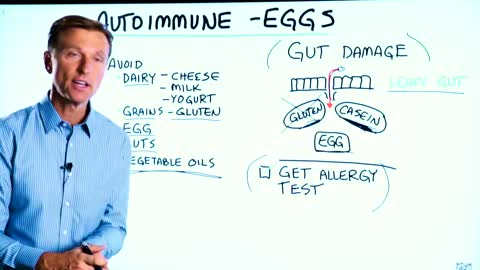 AUTOIMMUNE - EGGS
AVOID
DAIRY - CHEESE
- MILK
- YOGURT
GRAINS - GLUTEN
EGG
NUTS
VEGETABLE OILS
(GUT DAMAGE)
LEAKY GUT
GLUTEN
CASEIN
EGG
GET ALLERGY
TEST